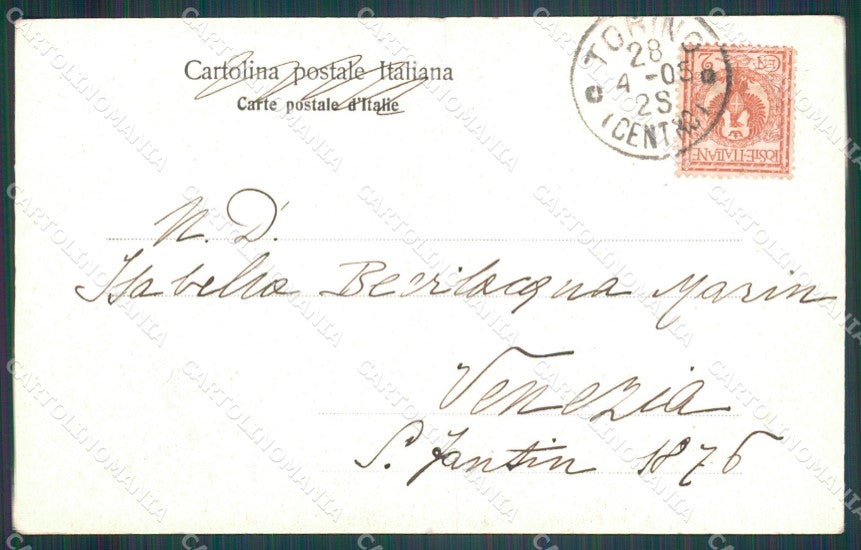 Cartolina postale Italiana
Carte postale d'Italie
TORINO
28
4-05
2S
(CENTRO)
CENT. 2
POSTE·ITALIANE
N. D.
Isabella Bevilacqua Marin
Venezia
S. Fantin 1876
CARTOLINOMANIA